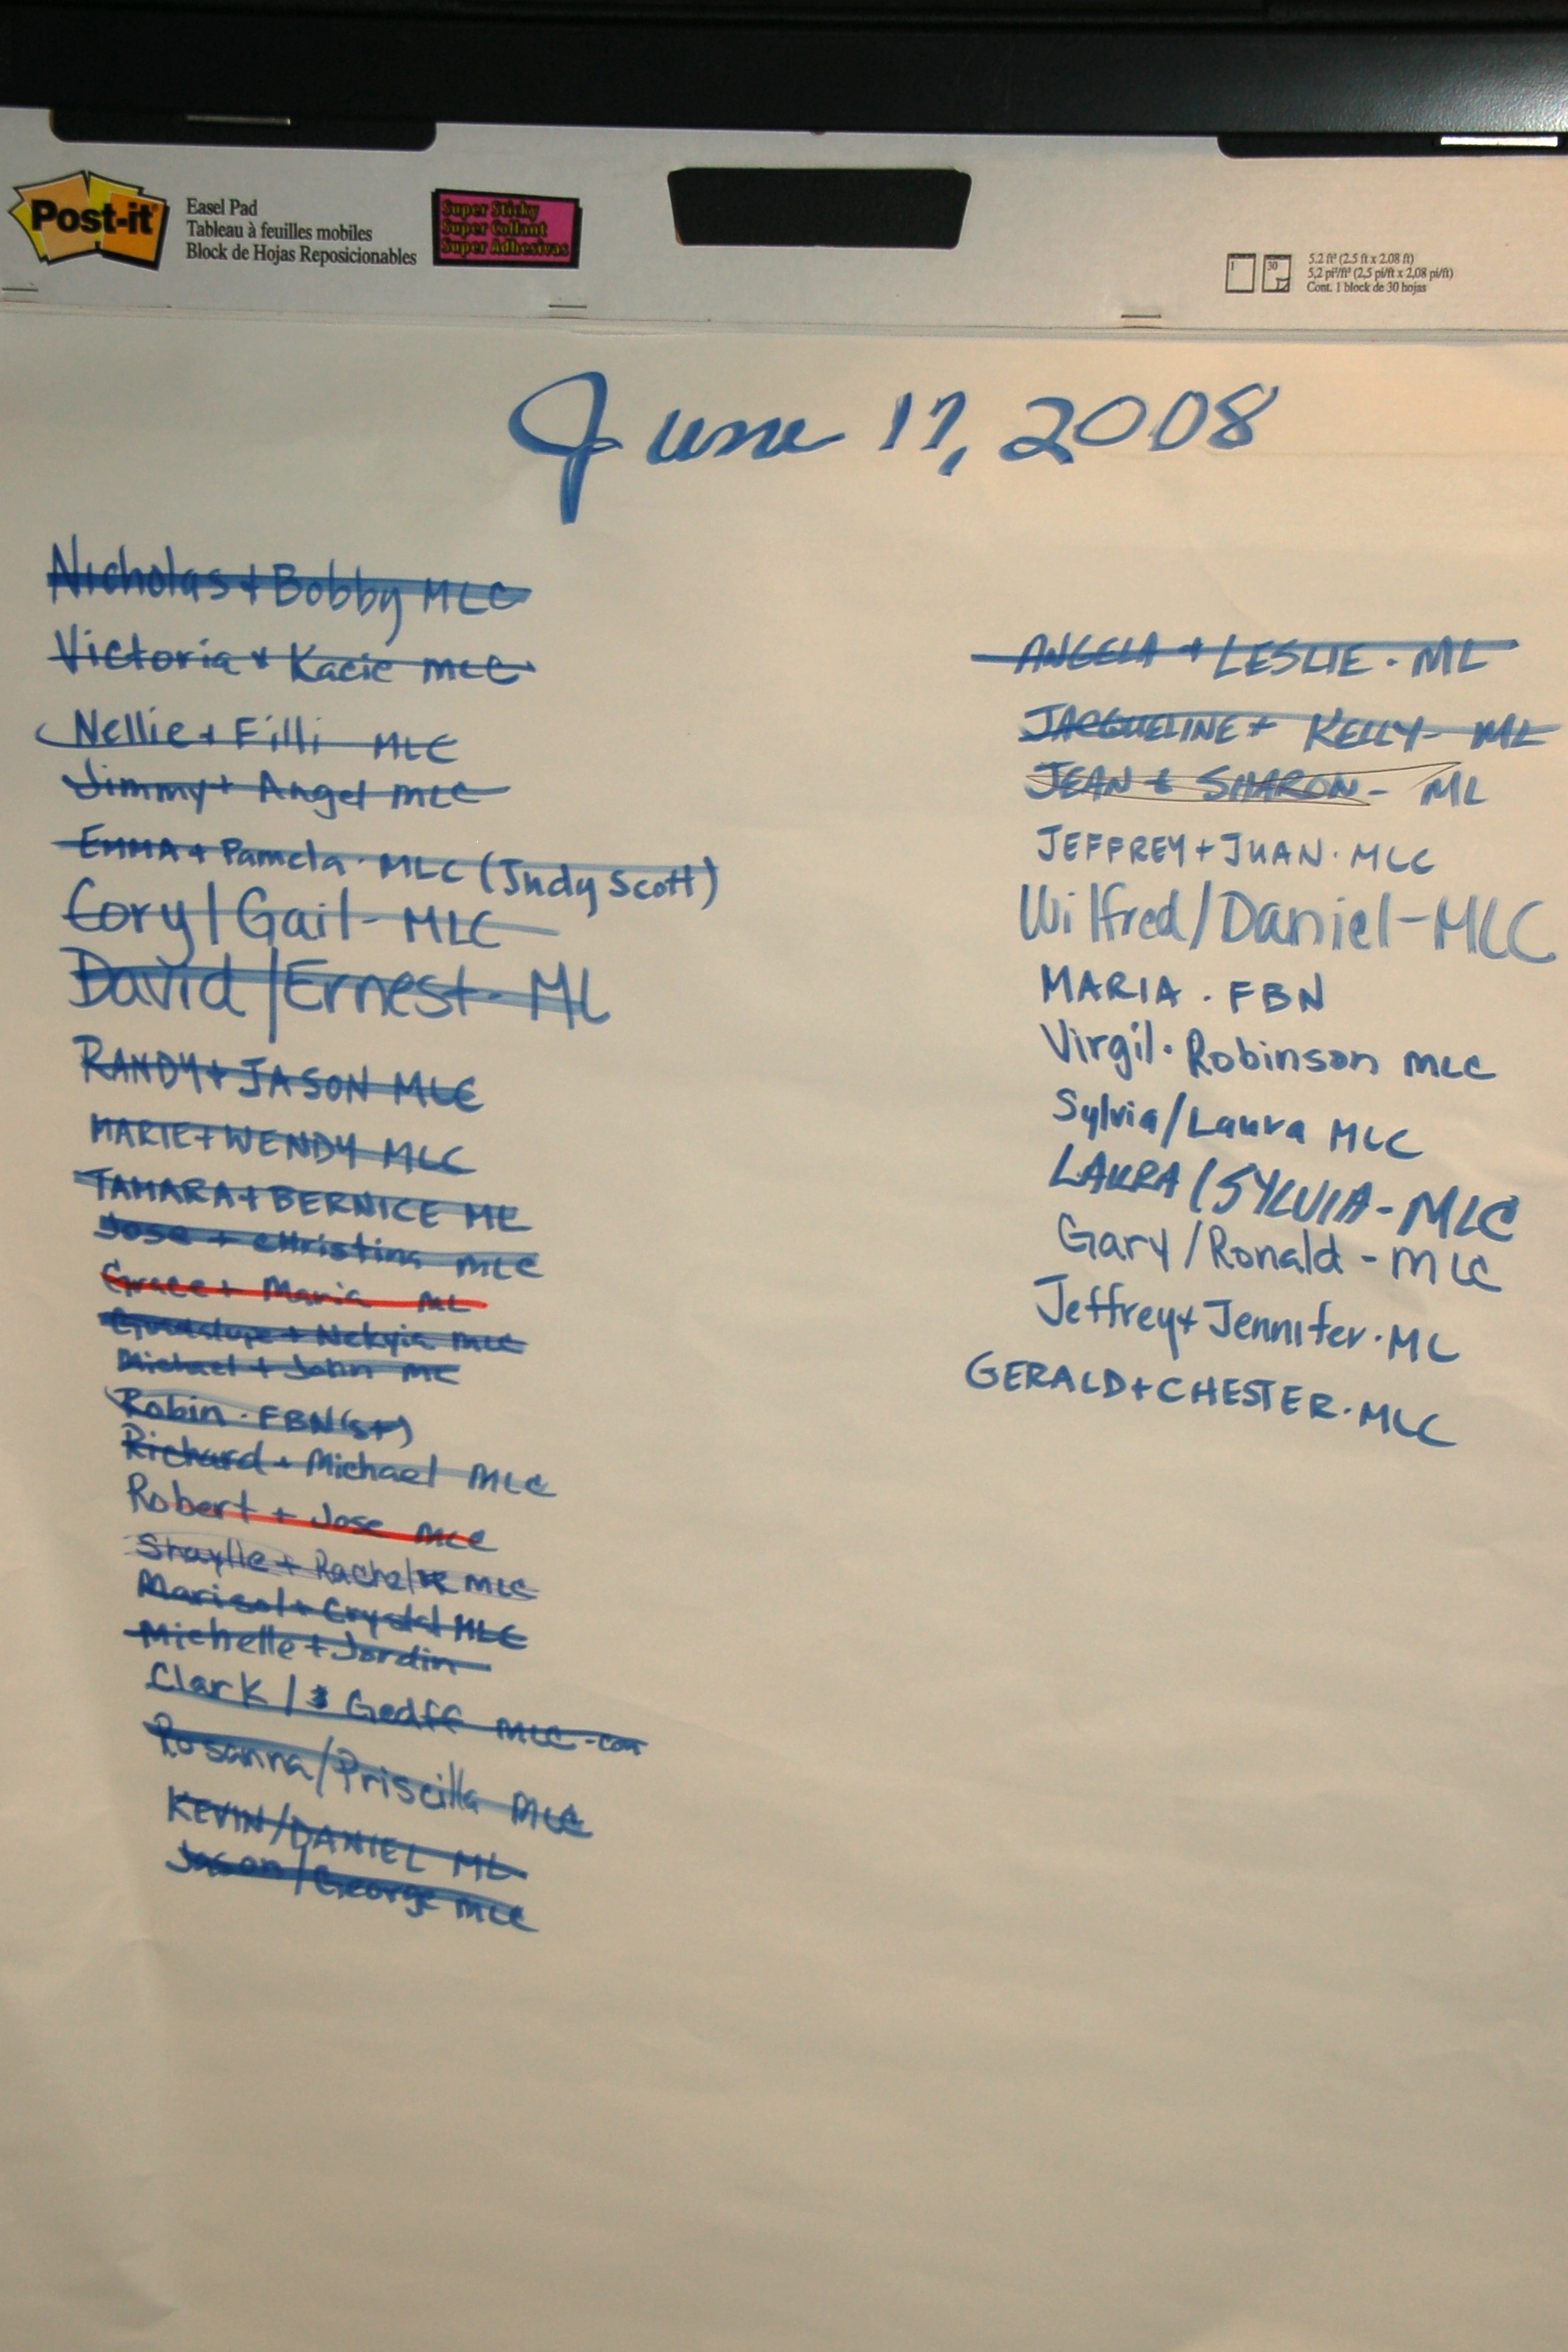 Post-it
Easel Pad
Tableau à feuilles mobiles
Block de Hojas Reposicionables
Super Sticky
Super Collant
Super Adhesivas
1
30
5.2 ft² (2.5 ft x 2.08 ft)
5,2 pi²/ft² (2,5 pi/ft x 2,08 pi/ft)
Cont. 1 block de 30 hojas
June 17, 2008
Nicholas + Bobby MLC
Victoria + Kacie MLC
Nellie + Filli MLC
Jimmy + Angel MLC
EMMA + Pamela · MLC (Judy Scott)
Cory/Gail - MLC
David/Ernest - ML
RANDY + JASON MLC
MARIE + WENDY MLC
TAMARA + BERNICE ML
Jose + Christina MLC
Grace + Maria ML
Guadalupe + Nekyia MLC
Michael + John MC
Robin · FBN(st)
Richard + Michael MLC
Robert + Jose MLC
Shaylie + Rachel MLC
Marisol + Crystal MLC
Michelle + Jordin
Clark / Geoff MLC -con
Rosanna/Priscilla MLC
KEVIN/DANIEL ML
Jason/George MLC
ANGELA + LESLIE · ML
JACQUELINE + KELLY - ML
JEAN + SHARON - ML
JEFFREY + JUAN · MLC
Wilfred/Daniel - MLC
MARIA · FBN
Virgil · Robinson MLC
Sylvia/Laura MLC
LAURA/SYLVIA - MLC
Gary/Ronald - MLC
Jeffrey + Jennifer · ML
GERALD + CHESTER · MLC